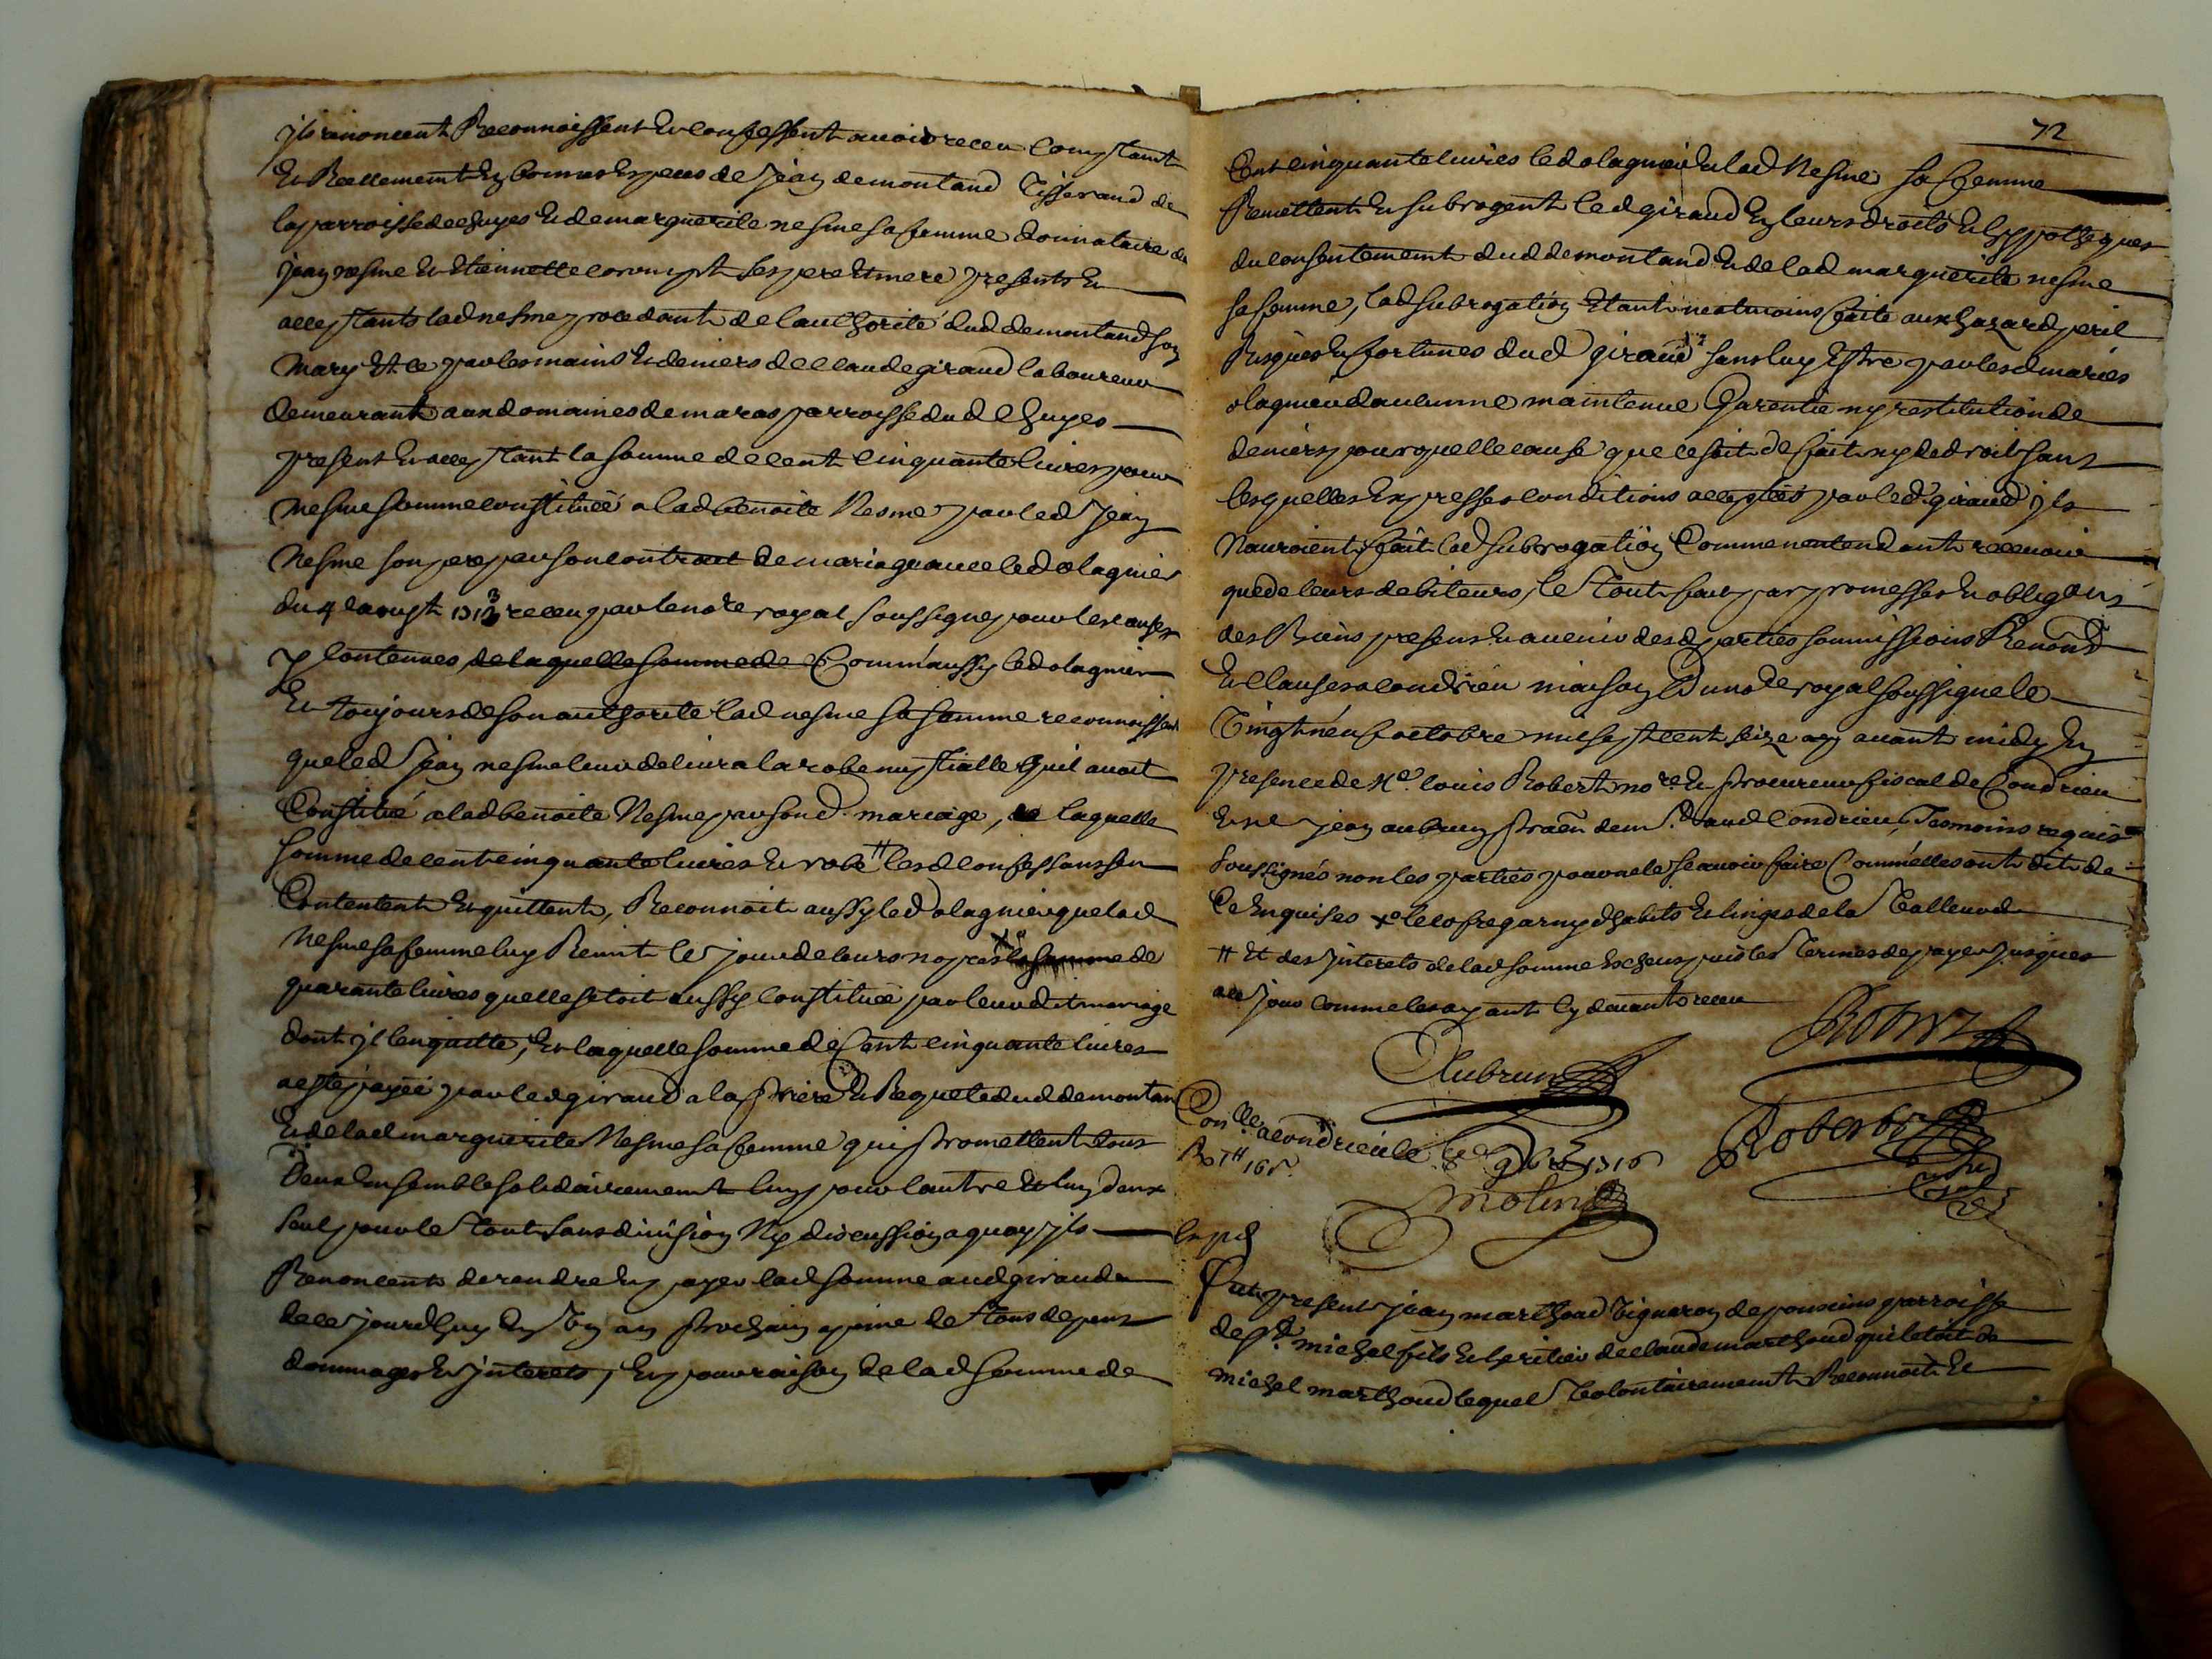 jls renoncent Reconnoissent et confessent avoir receu comptant
et Reellement en bonnes especes de Jean demontaud Tisserand de
la parroisse de chuyes et de marguerite nesme sa femme donnataire de
jean nesme et Etiennette corompt ses pere et mere presents et
acceptants lad nesme procedant de lauthorité dud demontaud son
mary et ce par les mains et deniers de claude giraud laboureur
demeurant aux domaines de maras parroisse dud chuyes
present et acceptant la somme de cent cinquante livres pour
mesme somme constituée a lad benoite Nesme par led Jean
Nesme son pere par son contract de mariage avec led olagnier
du 4e aoust 1713 receu par le nore royal soussigné pour les causes
y contenues, de laquelle somme de Comm'aussy led olagnier
Et toujours de son authorité lad nesme sa femme reconnoissent
que led Jean nesme leur delivra la robe nuptialle qu'il avoit
Constitué a lad benoite Nesme par sond. mariage, de laquelle
somme de cent cinquante livres et robe # lesd confessants sen
Contentent et quittent, Reconnoit aussy led olagnier que lad
Nesme sa femme luy Remit le jour de leurs nopces la somme de
quarante livres quelle setoit aussy constituée par leurdit mariage
dont jl len quitte, Et laquelle somme de Cent cinquante livres
a esté payée par led giraud a la priere et Requete dud demontau
Et de lad marguerite Nesme sa femme qui promettent tous
Deux Ensemble solidairement lun pour lautre et lun deux
seul pour le tout sans division Ny discussion a quoy jls
Renoncent de rendre et payer lad somme aud giraud
de ce jourdhuy En Un an prochain a peine de tous depens
dommages et jnterets, Et pour raison de lad somme de
72
Cent cinquante livres led olagnier et lad Nesme sa femme
Remettent et subrogent led giraud En leurs droits et hyppotheques
du consentement dud demontaud et de lad marguerite nesme
sa femme, lad subrogation Etant neatmoins faite aux hazard peril
Risques et fortunes dud giraud sans luy Estre par lesd mariés
olagnier daucunne maintenue Garentie ny restitution de
deniers pour quelle cause que ce soit de fait ny de droit sans
lesquelles Expresses conditions acceptées par led. giraud jls
Nauroient fait lad subrogation Comme nentendant recevoir
que de leurs debiteurs, le tout fait par promesses et obligaons
des Biens presens et avenir desd parties soumissions Renonons
Et clauses a condrieu maison du nore royal soussigné le
Vingt neuf octobre mil sept cent seize an avant midy En
presence de Me. louis Robert nore. et procureur fiscal de Condrieu
et sr jean aubrun praen demt. aud Condrieu, Tesmoins requis
soussignés non les parties pour ne le sçavoir faire Comm'elles ont dit de
Ce Enquises xo le cofre garny dhabits et linges de la valleur de
# Et des jnterets de lad somme Echeus puis les termes de payer jusques
a ce jour comme les ayant cy devant receu
Aubrun
Robert
Conllé a condrieu le 8e 9bre 1716
Molin
Robert
Exped
Fut present jean marthoud Vigneron de poncins parroisse
de St. michel fils et heritier de claude marthoud qui letoit de
michel marthoud lequel Volontairement Reconnoit et